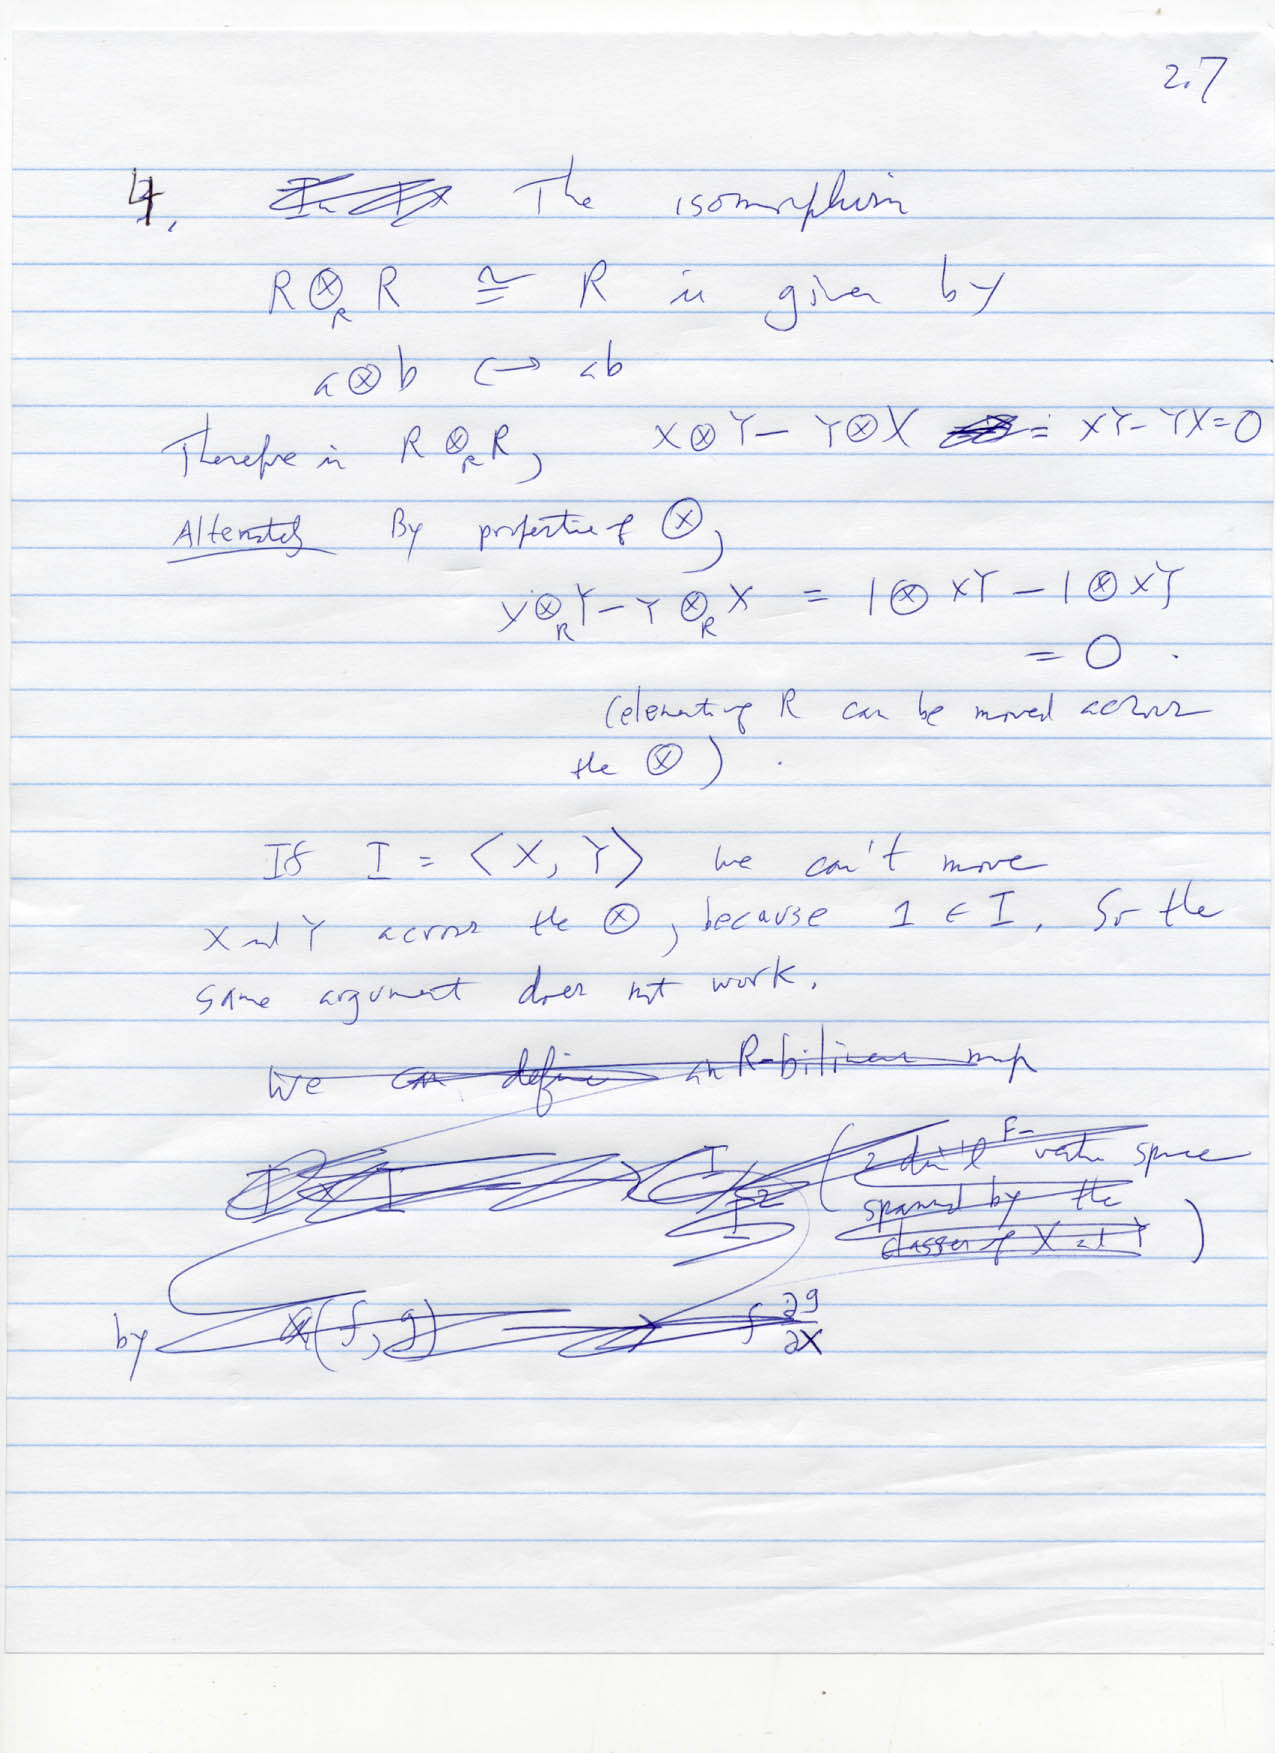 2.7
4. The isomorphism
R ⊗_R R ≅ R is given by
a ⊗ b ↔ ab
Therefore in R ⊗_R R, X ⊗ Y − Y ⊗ X = XY − YX = 0
Alternately By properties of ⊗,
X ⊗_R Y − Y ⊗_R X = 1 ⊗ XY − 1 ⊗ XY
= 0 .
(elements of R can be moved across
the ⊗) .
If I = ⟨X, Y⟩ we can't move
X and Y across the ⊗, because 1 ∈ I. So the
same argument does not work.
We can define an R-bilinear map
I × I → I/I² (2 dim'l F-vector space
spanned by the
classes of X and Y)
by (f, g) → f ∂g/∂X